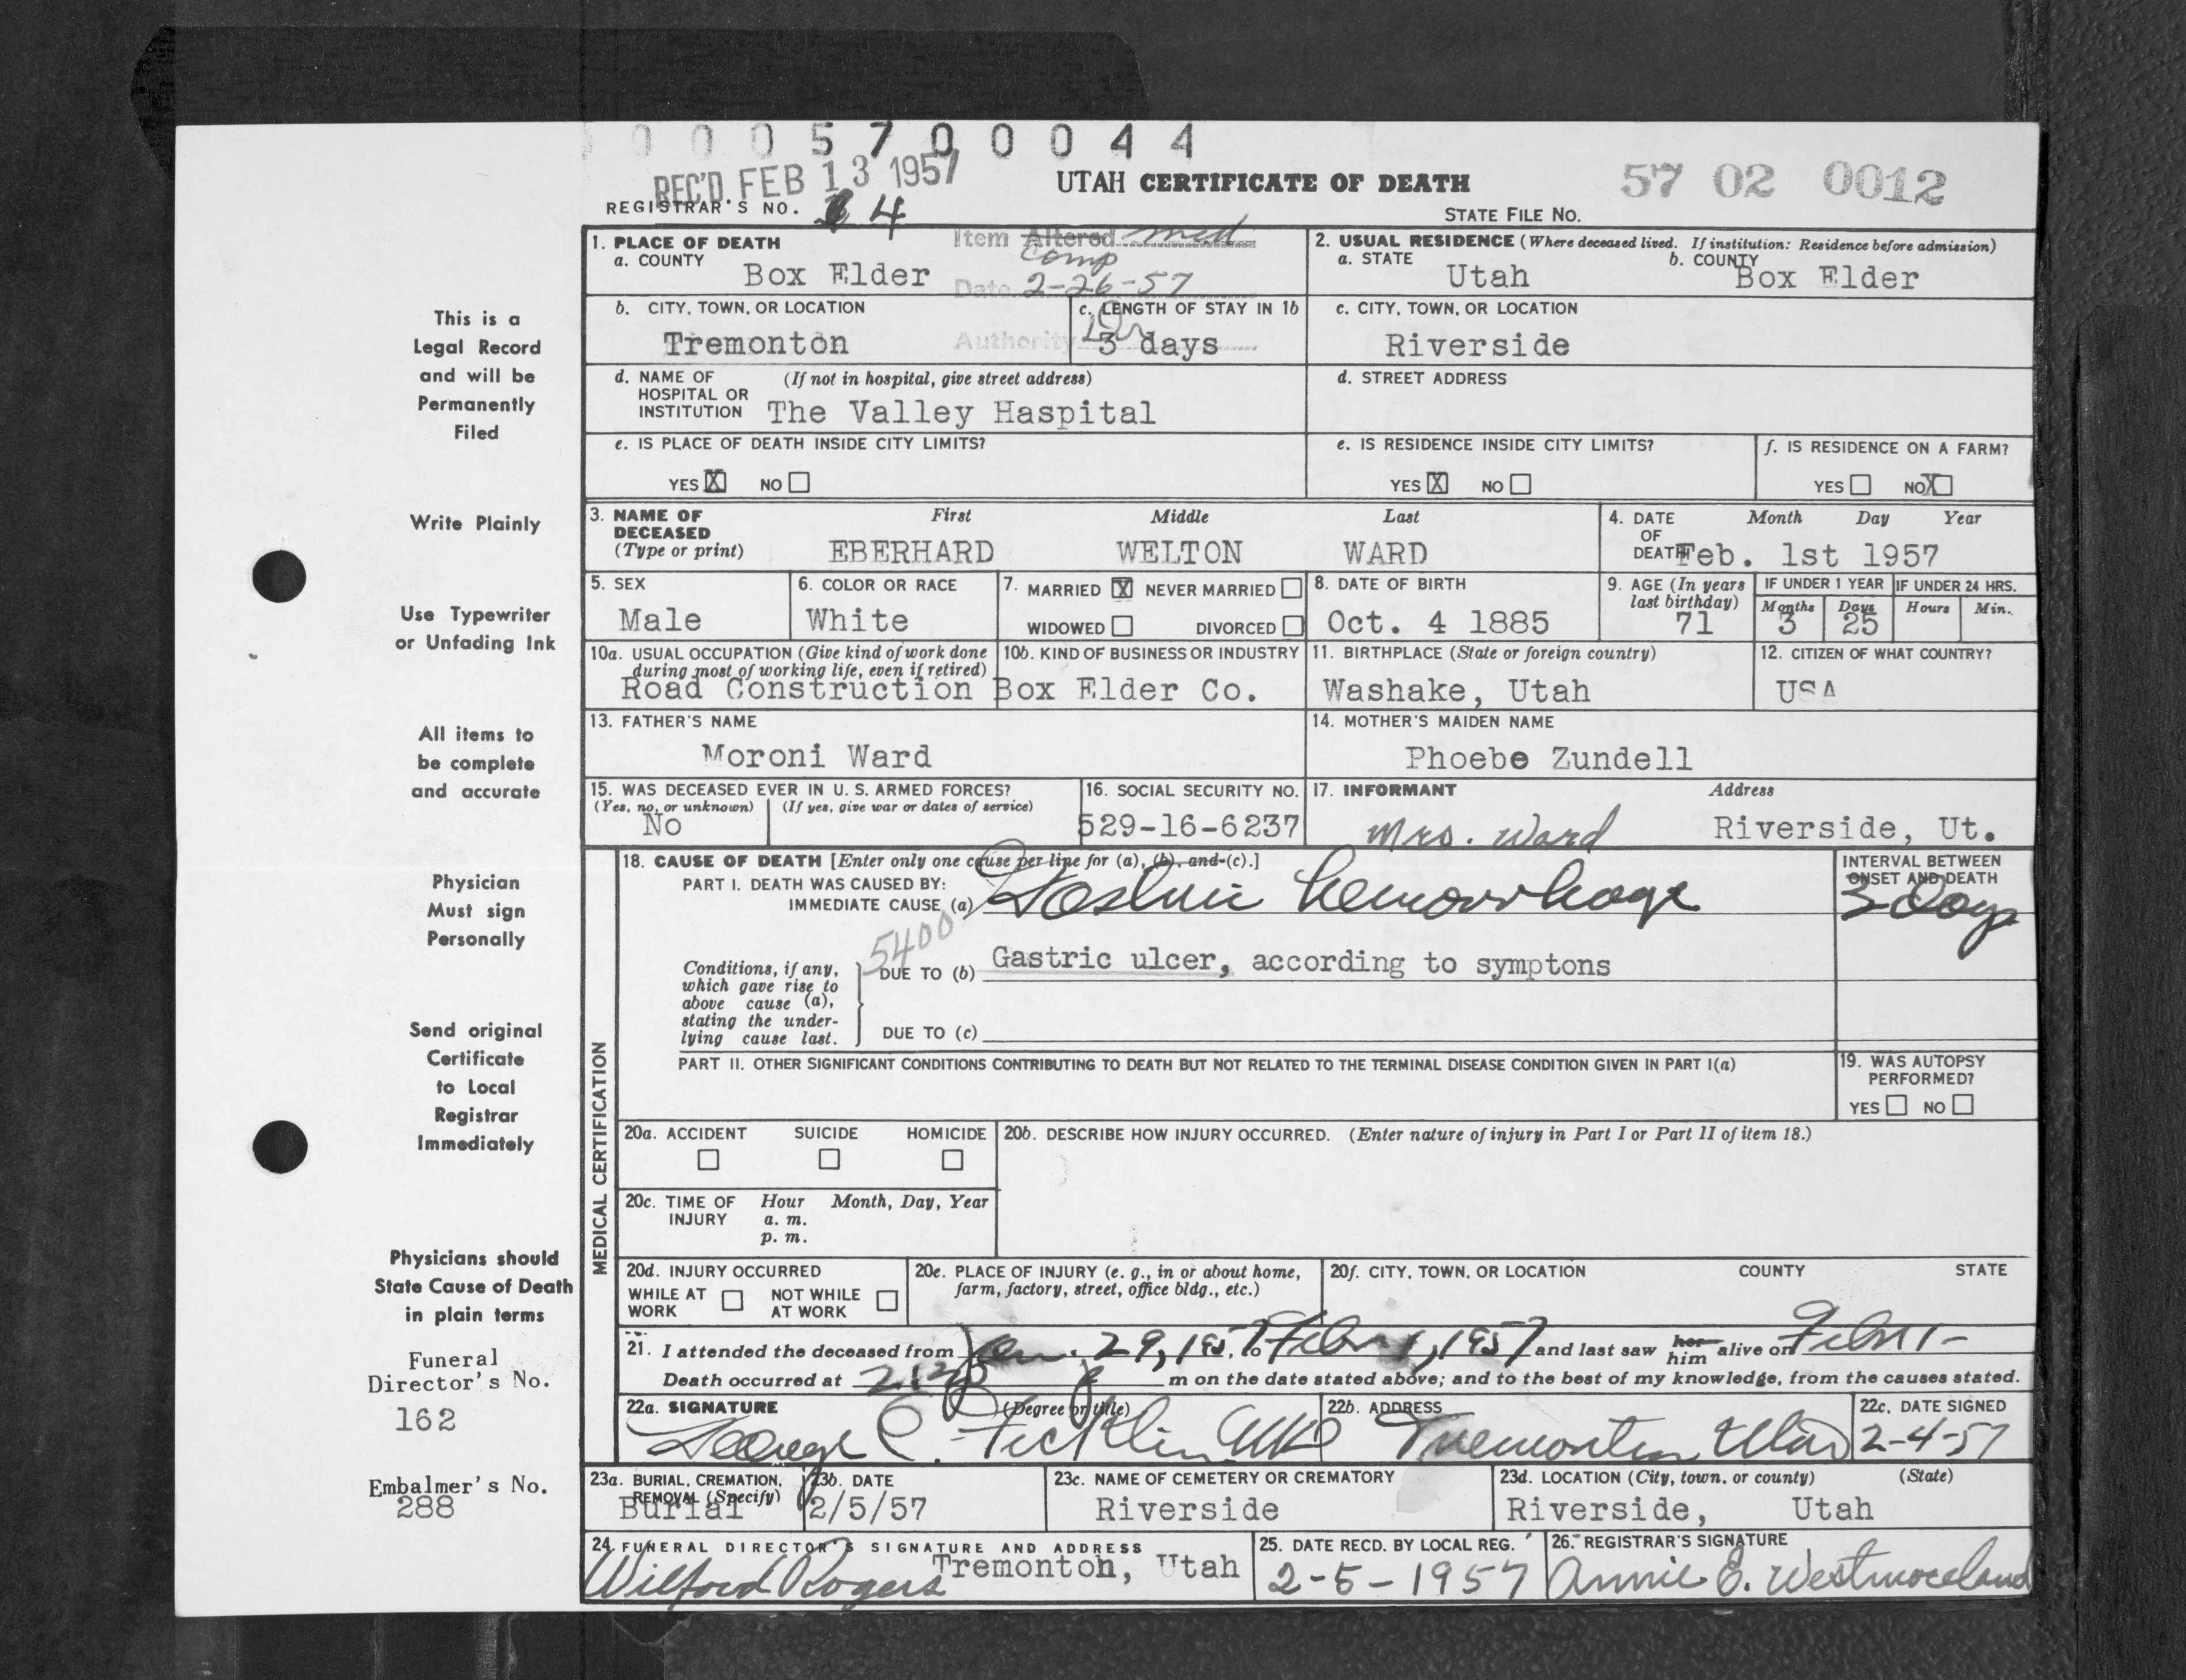 0 0 0 5 7 0 0 0 4 4
REC'D FEB 13 1957
UTAH CERTIFICATE OF DEATH
57 02 0012
REGISTRAR'S NO. 4
STATE FILE NO.
1. PLACE OF DEATH
a. COUNTY
Box Elder
Item Altered med
Comp
Date 2-26-57
2. USUAL RESIDENCE (Where deceased lived. If institution: Residence before admission)
a. STATE
Utah
b. COUNTY
Box Elder
b. CITY, TOWN, OR LOCATION
Tremonton
Authority Dr
c. LENGTH OF STAY IN 1b
3 days
c. CITY, TOWN, OR LOCATION
Riverside
d. NAME OF (If not in hospital, give street address)
HOSPITAL OR
INSTITUTION The Valley Haspital
d. STREET ADDRESS
e. IS PLACE OF DEATH INSIDE CITY LIMITS?
YES X NO
e. IS RESIDENCE INSIDE CITY LIMITS?
YES X NO
f. IS RESIDENCE ON A FARM?
YES NO X
3. NAME OF DECEASED
(Type or print)
First Middle Last
EBERHARD WELTON WARD
4. DATE OF DEATH
Month Day Year
Feb. 1st 1957
5. SEX
Male
6. COLOR OR RACE
White
7. MARRIED X NEVER MARRIED
WIDOWED DIVORCED
8. DATE OF BIRTH
Oct. 4 1885
9. AGE (In years
last birthday)
71
IF UNDER 1 YEAR
Months Days
3 25
IF UNDER 24 HRS.
Hours Min.
10a. USUAL OCCUPATION (Give kind of work done
during most of working life, even if retired)
Road Construction
10b. KIND OF BUSINESS OR INDUSTRY
Box Elder Co.
11. BIRTHPLACE (State or foreign country)
Washake, Utah
12. CITIZEN OF WHAT COUNTRY?
USA
13. FATHER'S NAME
Moroni Ward
14. MOTHER'S MAIDEN NAME
Phoebe Zundell
15. WAS DECEASED EVER IN U. S. ARMED FORCES?
(Yes, no, or unknown) (If yes, give war or dates of service)
No
16. SOCIAL SECURITY NO.
529-16-6237
17. INFORMANT Address
Mrs. Ward Riverside, Ut.
MEDICAL CERTIFICATION
18. CAUSE OF DEATH [Enter only one cause per line for (a), (b), and (c).]
PART I. DEATH WAS CAUSED BY:
IMMEDIATE CAUSE (a) hemorrhage
INTERVAL BETWEEN
ONSET AND DEATH
3 days
5400
Conditions, if any,
which gave rise to
above cause (a),
stating the under-
lying cause last.
DUE TO (b) Gastric ulcer, according to symptons
DUE TO (c)
PART II. OTHER SIGNIFICANT CONDITIONS CONTRIBUTING TO DEATH BUT NOT RELATED TO THE TERMINAL DISEASE CONDITION GIVEN IN PART I(a)
19. WAS AUTOPSY
PERFORMED?
YES NO
20a. ACCIDENT SUICIDE HOMICIDE
20b. DESCRIBE HOW INJURY OCCURRED. (Enter nature of injury in Part I or Part II of item 18.)
20c. TIME OF Hour Month, Day, Year
INJURY a. m.
p. m.
20d. INJURY OCCURRED
WHILE AT WORK NOT WHILE AT WORK
20e. PLACE OF INJURY (e. g., in or about home,
farm, factory, street, office bldg., etc.)
20f. CITY, TOWN, OR LOCATION COUNTY STATE
21. I attended the deceased from Jan. 29, 1957, to Febr 1, 1957 and last saw her him alive on Febr 1-
Death occurred at 2:20 p m on the date stated above; and to the best of my knowledge, from the causes stated.
22a. SIGNATURE (Degree or title)
George C. Ficklin MD
22b. ADDRESS
Tremonton Utah
22c. DATE SIGNED
2-4-57
23a. BURIAL, CREMATION,
REMOVAL (Specify)
Burial
23b. DATE
2/5/57
23c. NAME OF CEMETERY OR CREMATORY
Riverside
23d. LOCATION (City, town, or county) (State)
Riverside, Utah
24. FUNERAL DIRECTOR'S SIGNATURE AND ADDRESS
Wilford Rogers Tremonton, Utah
25. DATE RECD. BY LOCAL REG.
2-5-1957
26. REGISTRAR'S SIGNATURE
Annie E. Westmoreland
This is a
Legal Record
and will be
Permanently
Filed
Write Plainly
Use Typewriter
or Unfading Ink
All items to
be complete
and accurate
Physician
Must sign
Personally
Send original
Certificate
to Local
Registrar
Immediately
Physicians should
State Cause of Death
in plain terms
Funeral
Director's No.
162
Embalmer's No.
288